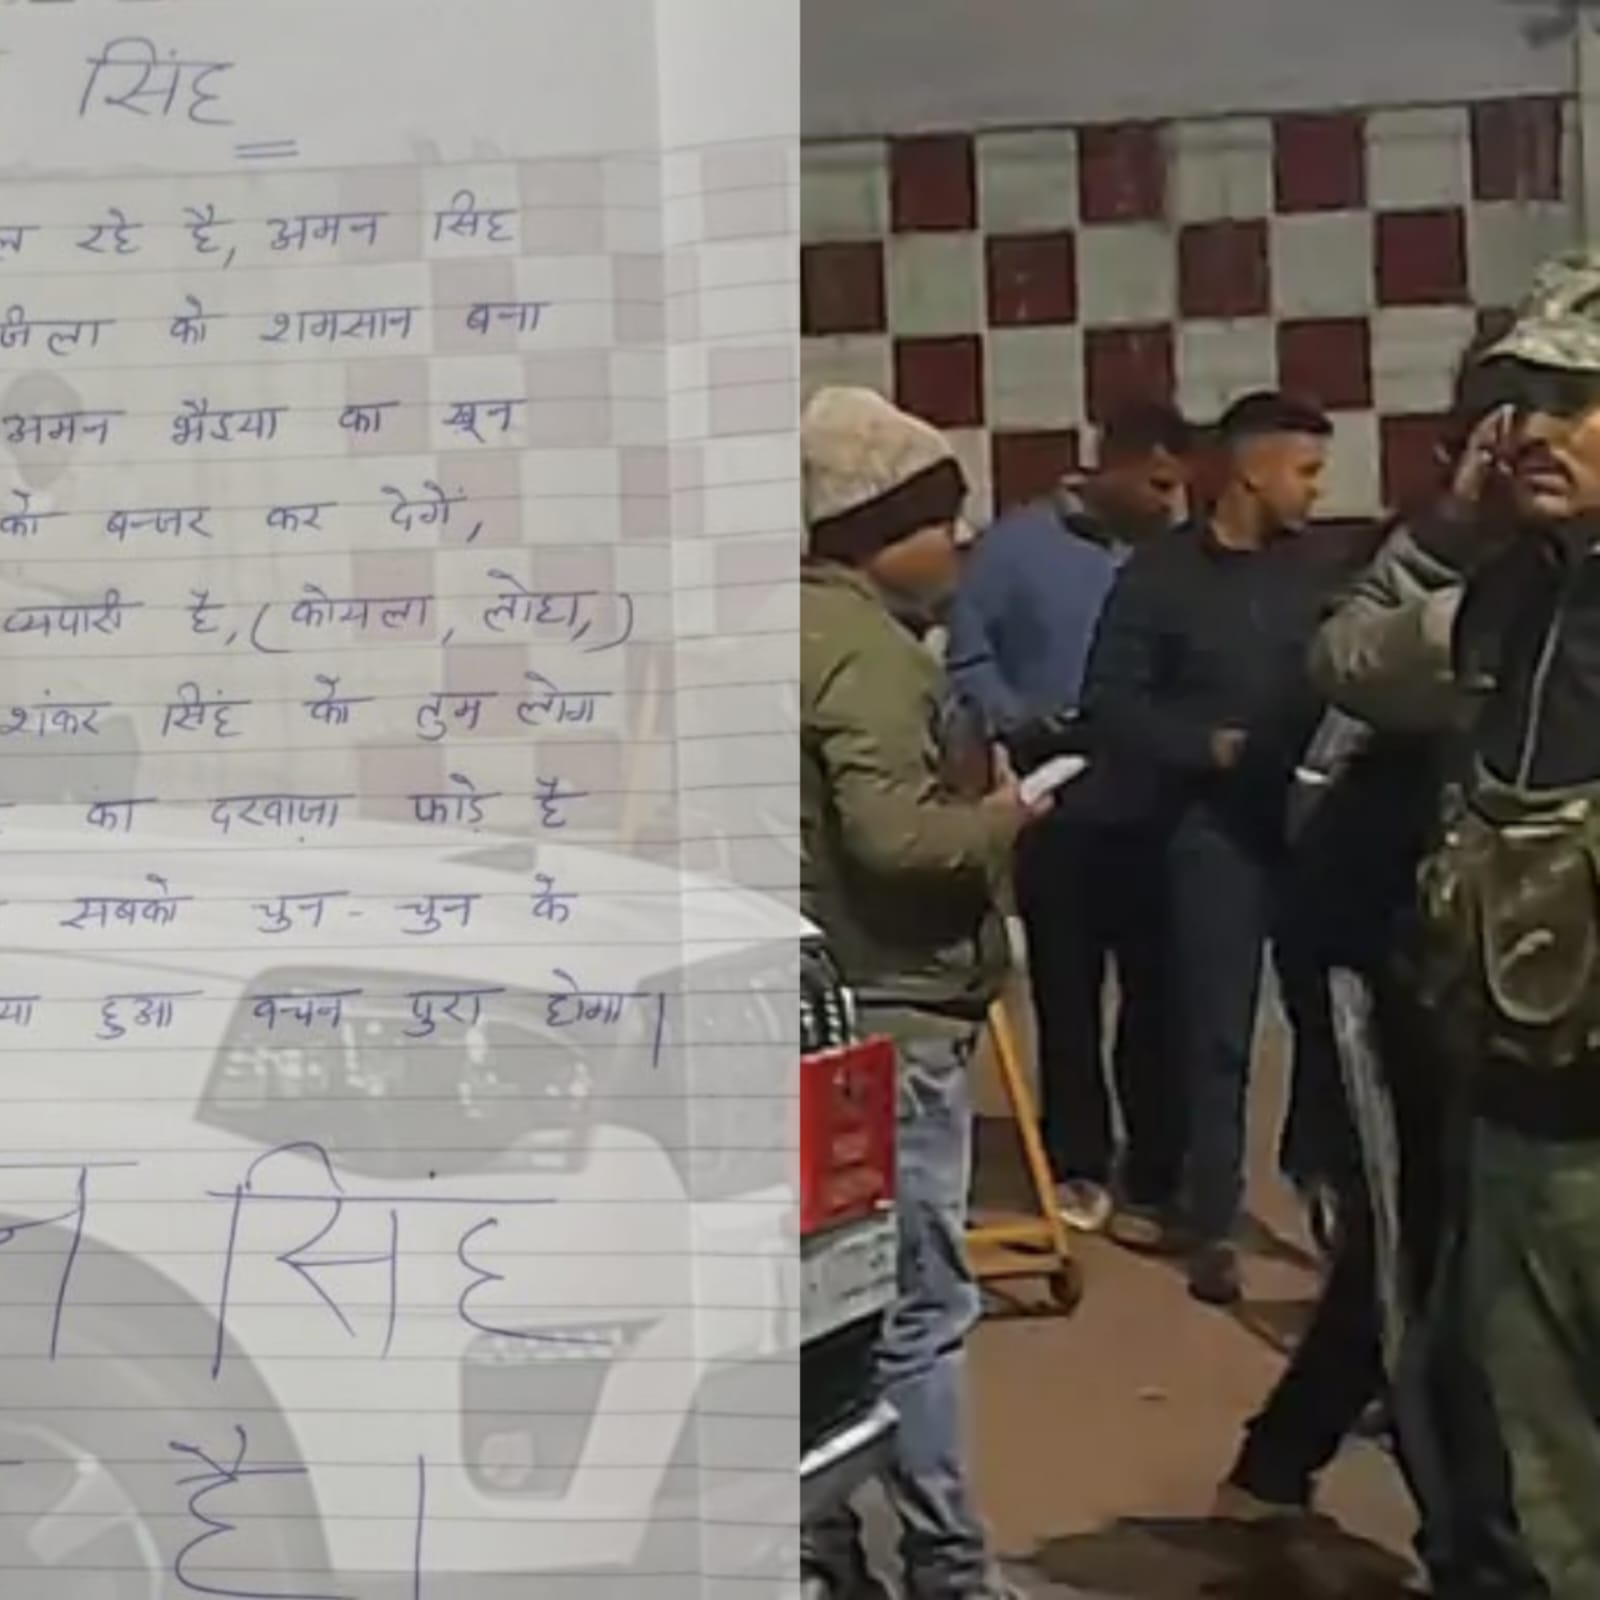 सिंह
रहे है, अमन सिंह
जिला को शमसान बना
अमन भैइया का खून
को बन्जर कर देगें,
व्यपारी है, (कोयला, लोहा,)
शंकर सिंह को तुम लोग
का दरवाजा फाड़े है
सबको चुन-चुन के
हुआ वचन पुरा होगा।
सिंह
है।